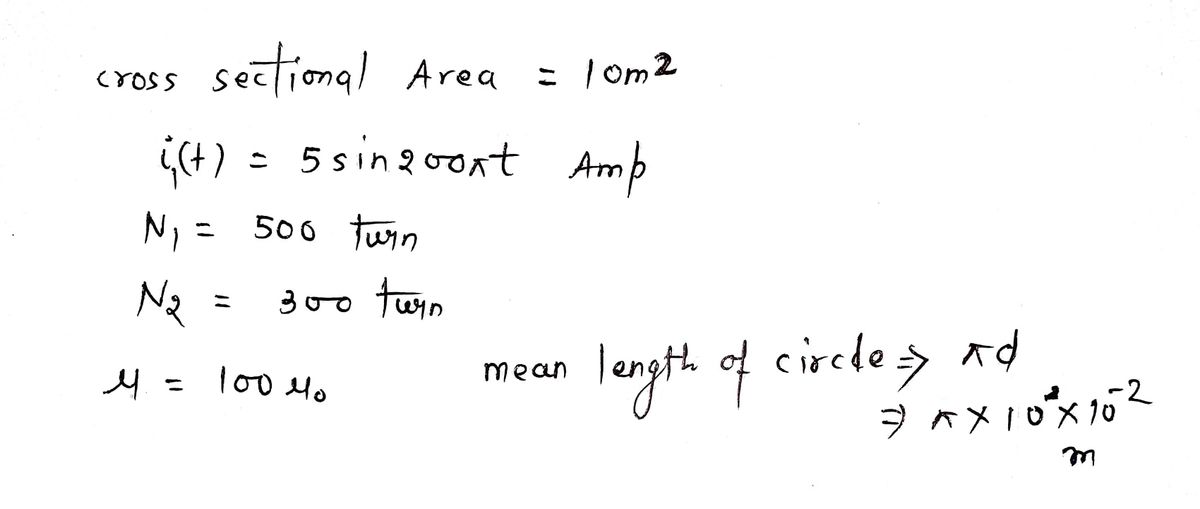 cross sectional Area = 10m2
i₁(t) = 5 sin 200πt Amp
N₁ = 500 turn
N₂ = 300 turn
μ = 100 μ₀
mean length of circle ⇒ πd
⇒ π × 10 × 10⁻²
m